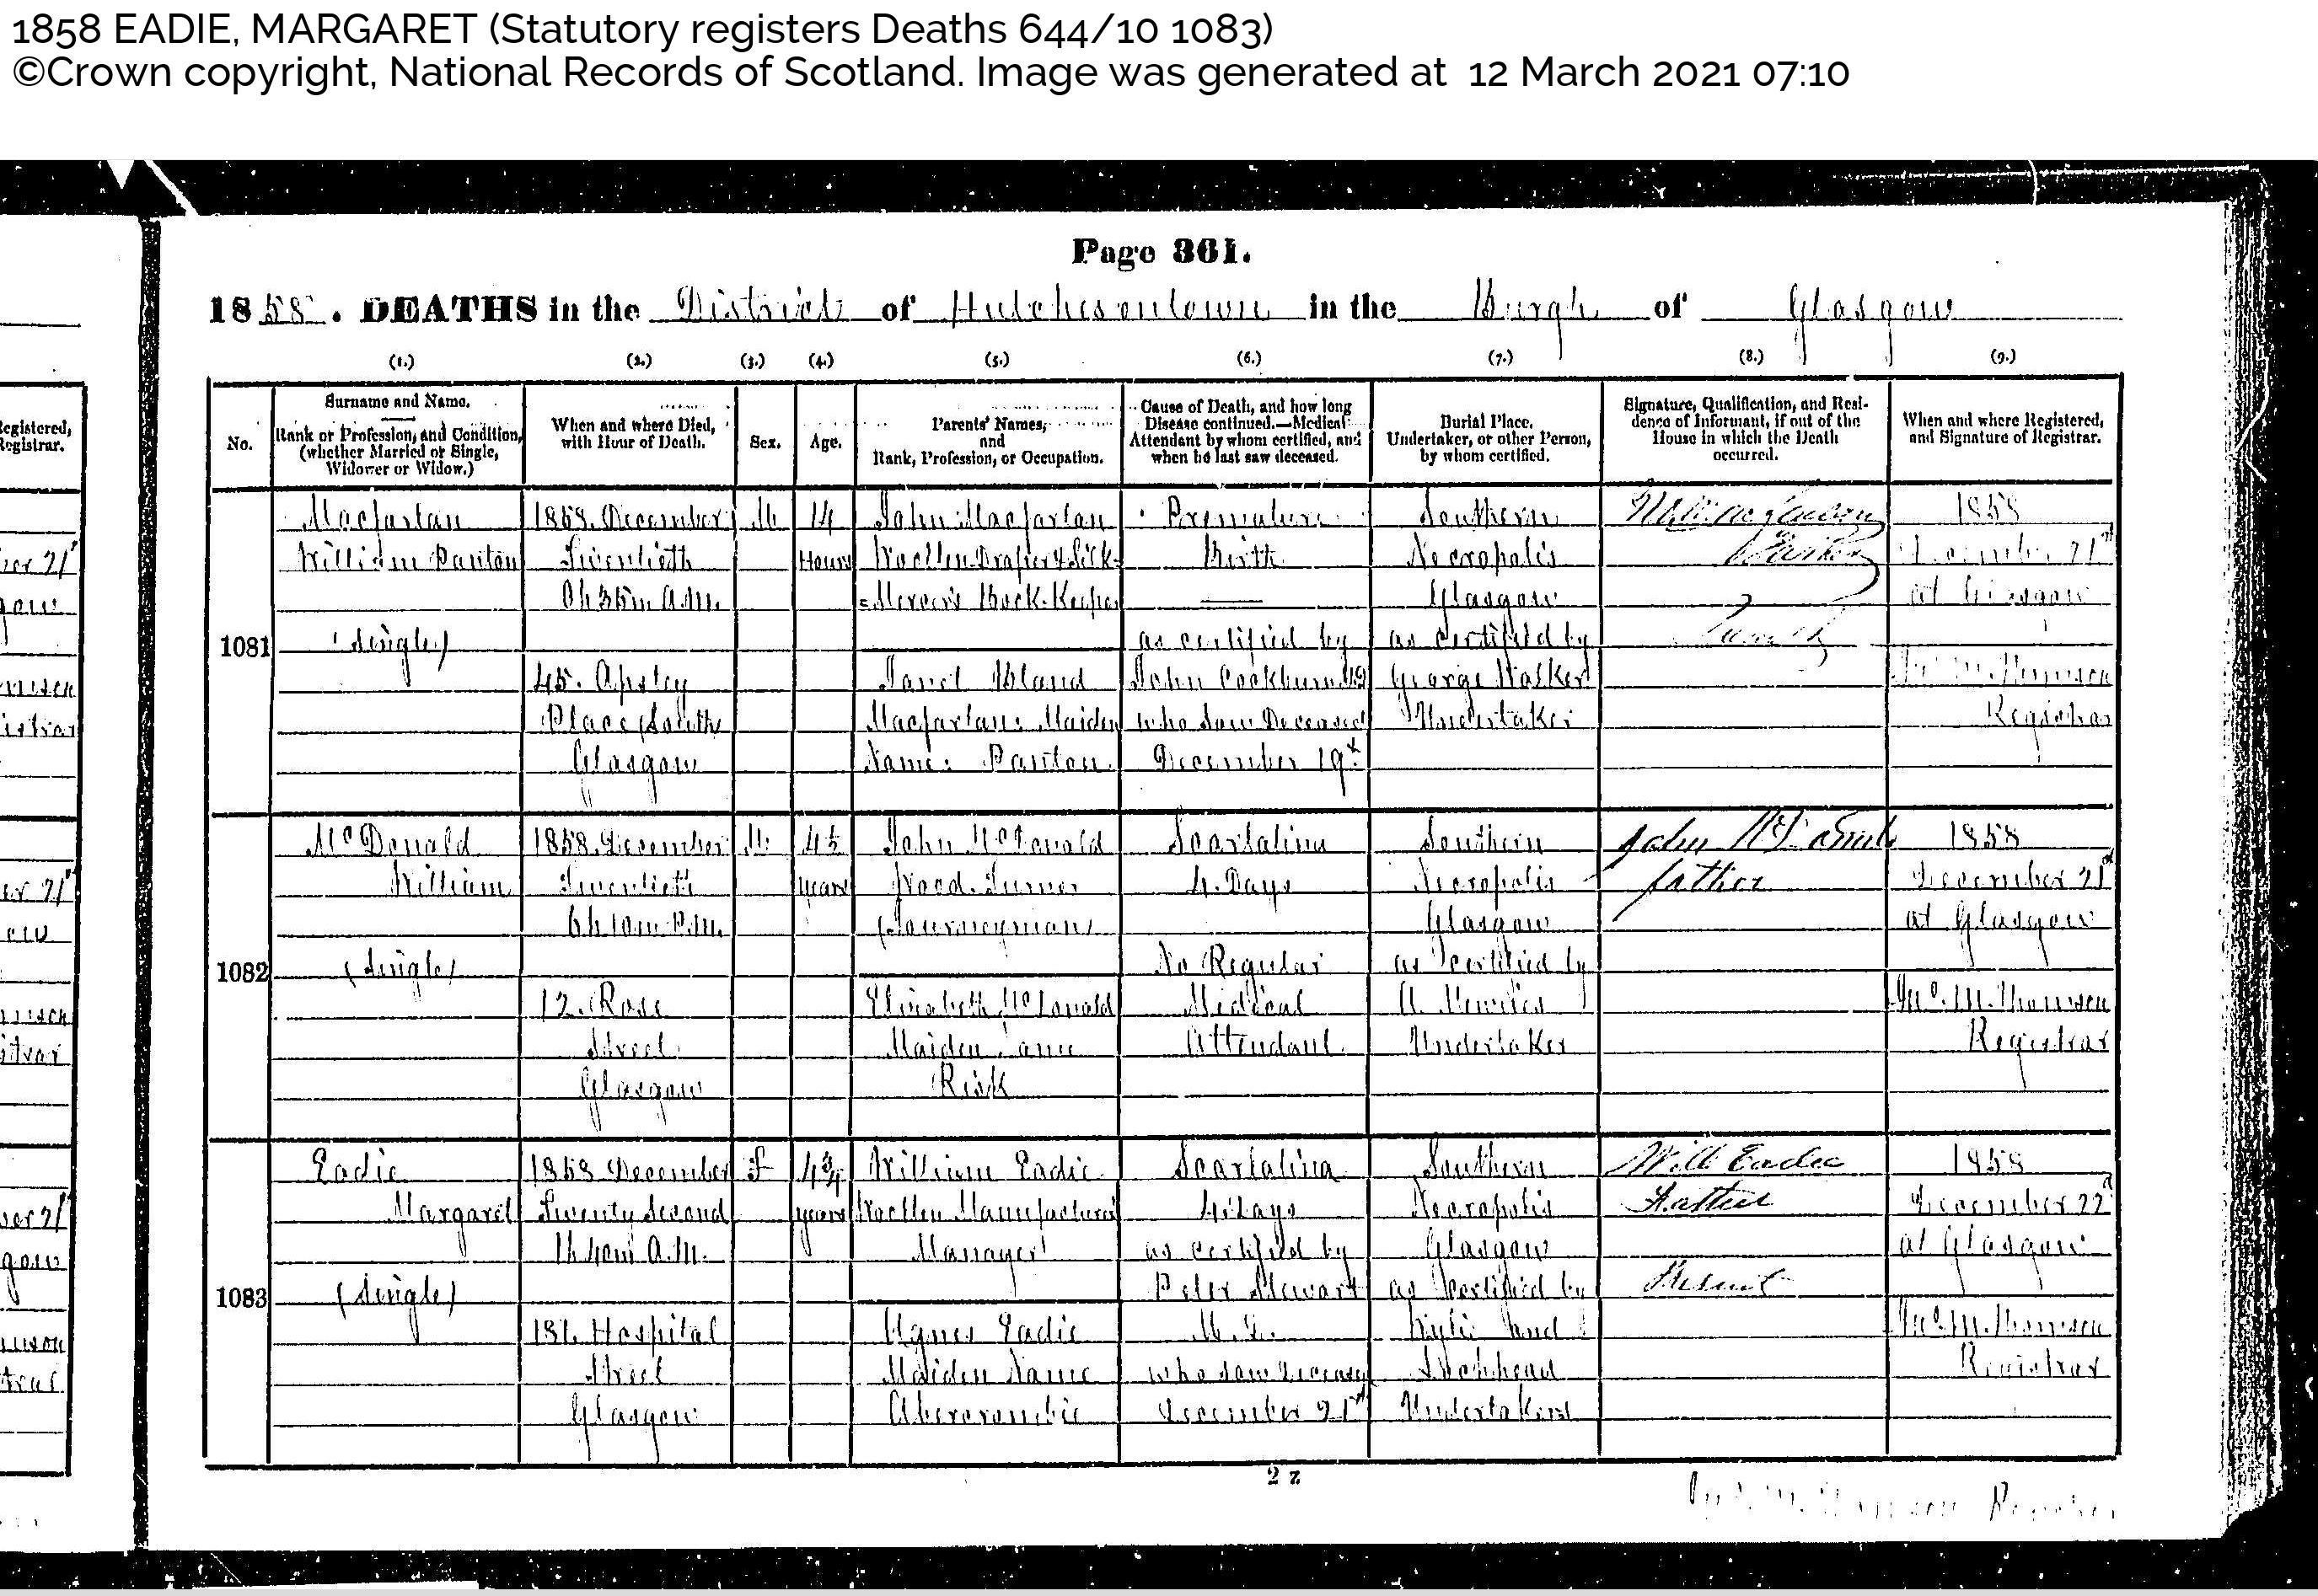 1858 EADIE, MARGARET (Statutory registers Deaths 644/10 1083)
©Crown copyright, National Records of Scotland. Image was generated at 12 March 2021 07:10
Page 361.
1858. DEATHS in the District of Hutchesontown in the Burgh of Glasgow
(1.) (2.) (3.) (4.) (5.) (6.) (7.) (8.) (9.)
No.
Surname and Name.
Rank or Profession, and Condition,
(whether Married or Single,
Widower or Widow.)
When and where Died,
with Hour of Death.
Sex.
Age.
Parents' Names,
and
Rank, Profession, or Occupation.
Cause of Death, and how long
Disease continued.—Medical
Attendant by whom certified, and
when he last saw deceased.
Burial Place.
Undertaker, or other Person,
by whom certified.
Signature, Qualification, and Resi-
dence of Informant, if out of the
House in which the Death
occurred.
When and where Registered,
and Signature of Registrar.
1081
Macfarlan
William Panton
(Single)
1858. December
Twentieth
0h 35m A.M.
45. Apsley
Place South
Glasgow
M.
14
Hours
John Macfarlan
Woollen Draper & Silk-
=Mercer's Book-Keeper
Janet Bland
Macfarlan: Maiden
Name: Panton.
Premature
Birth
as certified by
John Cockburn MD
who saw Deceased
December 19th
Southern
Necropolis
Glasgow
as certified by
George Walker
Undertaker
1858
December 21st
at Glasgow
Thomson
Registrar
1082
McDonald
William
(Single)
1858. December
Twentieth
6h 10m P.M.
12. Rose
Street
Glasgow
M.
4½
years
John McDonald
Wood Turner
(Journeyman)
Elizabeth McDonald
Maiden Name
Risk
Scarlatina
4. Days
No Regular
Medical
Attendant.
Southern
Necropolis
Glasgow
as certified by
Undertaker
John McDonald
father
1858
December 21st
at Glasgow
M. Thomson
Registrar
1083
Eadie
Margaret
(Single)
1858 December
Twenty Second
1h 40m A.M.
181. Hospital
Street
Glasgow
F
4¾
years
William Eadie
Woollen Manufacturer's
Manager
Agnes Eadie
Maiden Name
Abercrombie
Scarlatina
4 Days
as certified by
Peter Stewart
M.D.
who saw deceased
December 21st
Southern
Necropolis
Glasgow
as certified by
Wylie and
Lochhead
Undertakers
Will Eadie
Father
Present
1858
December 22d
at Glasgow
M. Thomson
Registrar
2 z